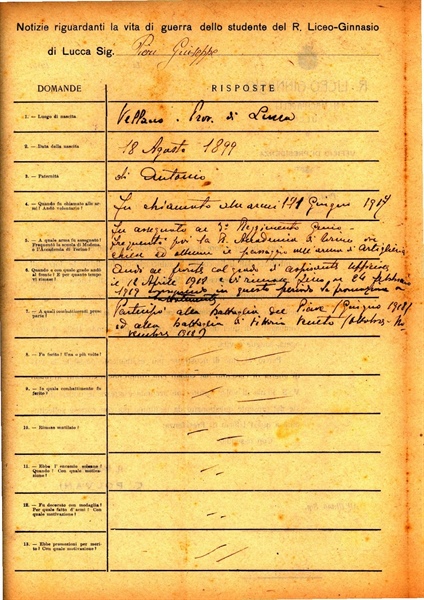 Notizie riguardanti la vita di guerra dello studente del R. Liceo-Ginnasio
di Lucca Sig. Pieri Giuseppe
DOMANDE
RISPOSTE
1. — Luogo di nascita
Vellano. Prov. di Lucca
2. — Data della nascita
18 Agosto 1899
3. — Paternità
di Antonio
4. — Quando fu chiamato alle armi? Andò volontario?
Fu chiamato alle armi 171 giugno 1917
5. — A quale arma fu assegnato? Frequentò la scuola di Modena, o l'Accademia di Torino?
Fu assegnato al 3° Reggimento Genio.
Frequentò poi la R. Accademia di Torino ove
chiese ed ottenne il passaggio nell'arma d'Artiglieria
6. — Quando e con quale grado andò al fronte? E per quanto tempo vi rimase?
Andò al fronte col grado d'aspirante ufficiale
il 12 Aprile 1918 e vi rimase fino al 26 febbraio
1919 in questo periodo fu promosso a
7. — A quali combattimenti prese parte?
Partecipò alla battaglia del Piave (Giugno 1918)
ed alla battaglia di Vittorio Veneto (Ottobre-No-
vembre 1918)
8. — Fu ferito? Una o più volte?
9. — In quale combattimento fu ferito?
10. — Rimase mutilato?
11. — Ebbe l'encomio solenne? Quando? Con quale motivazione?
12. — Fu decorato con medaglia? Per quale fatto d'armi? Con quale motivazione?
13. — Ebbe promozioni per merito? Con quale motivazione?